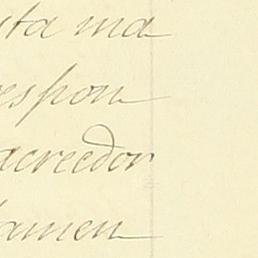 sta ma
respon
acreedor
tamen